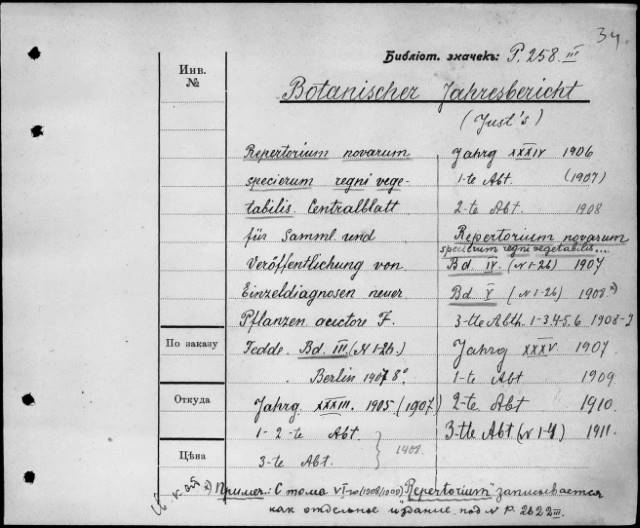 34.
Библіот. значекъ: P. 258. III
Инв. №
Botanischer Jahresbericht
(Just's)
Repertorium novarum
specierum regni vege-
tabilis. Centralblatt
für Samml. und
Veröffentlichung von
Einzeldiagnosen neuer
Pflanzen auctore F.
Fedde. Bd. III. (N 1-26.)
Berlin 1907 8°.
Jahrg. XXXIII. 1905. (1907.)
1-2-te Abt.
3-te Abt.
Jahrg XXXIV 1906
1-te Abt. (1907)
2-te Abt. 1908
Repertorium novarum
specierum regni vegetabilis...
Bd IV. (N 1-26) 1907
Bd V (N 1-26) 1908 *)
3-tte Abth. 1-3.4-5.6 1908-9
Jahrg XXXV. 1907
1-te Abt 1909
2-te Abt 1910
3-tte Abt (N 1-4) 1911.
По заказу
Откуда
Цѣна
*) Примеч.: С тома VI-го (1908/1909) "Repertorium" записывается
как отдельное издание под N P. 2622 III.